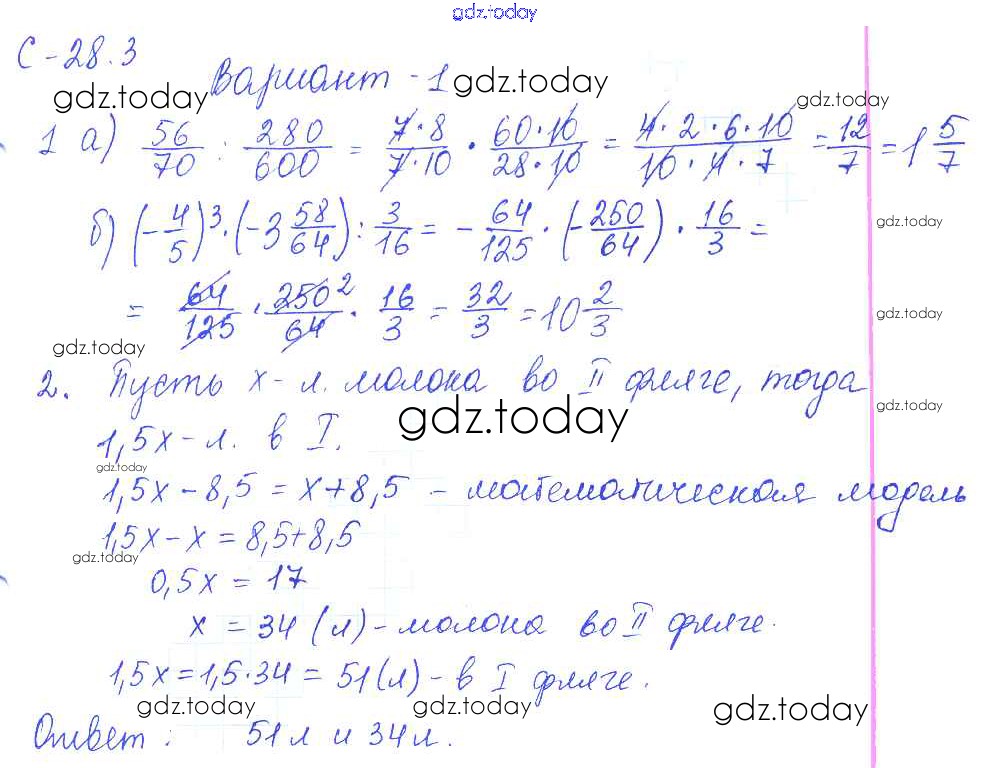 gdz.today
С-28.3
Вариант-1
gdz.today gdz.today gdz.today
1 а) 56/70 : 280/600 = 7·8/7·10 · 60·10/28·10 = 4·2·6·10/10·4·7 = 12/7 = 1 5/7
gdz.today
б) (-4/5)³·(-3 58/64) : 3/16 = -64/125 · (-250/64) · 16/3 =
= 64/125 · 250²/64 · 16/3 = 32/3 = 10 2/3
gdz.today
gdz.today
2. Пусть х-л. молока во II фляге, тогда
gdz.today gdz.today
1,5х-л. в I.
gdz.today
1,5х-8,5 = х+8,5 - математическая модель
1,5х-х = 8,5+8,5
gdz.today
0,5х = 17
х = 34 (л)-молока во II фляге.
1,5х=1,5·34 = 51(л)-в I фляге.
gdz.today gdz.today gdz.today
Ответ: 51л и 34л.